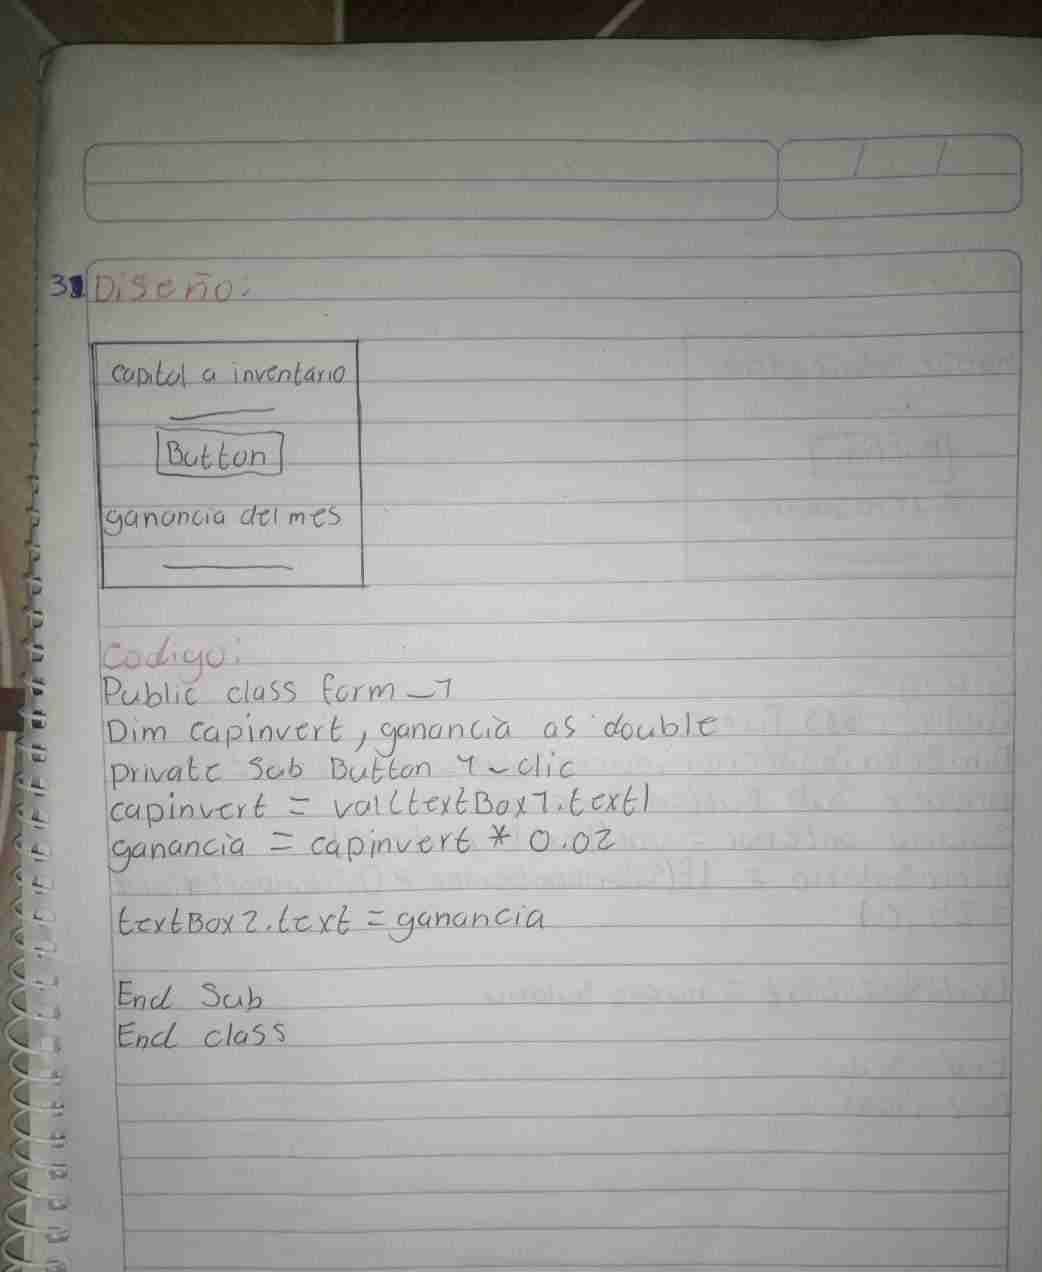 3 Diseño:
capital a inventario
Button
ganancia del mes
Codigo:
Public class form_1
Dim capinvert, ganancia as double
private Sub Button 1_clic
capinvert = val(textBox1.text)
ganancia = capinvert * 0.02
textBox2.text = ganancia
End Sub
End class